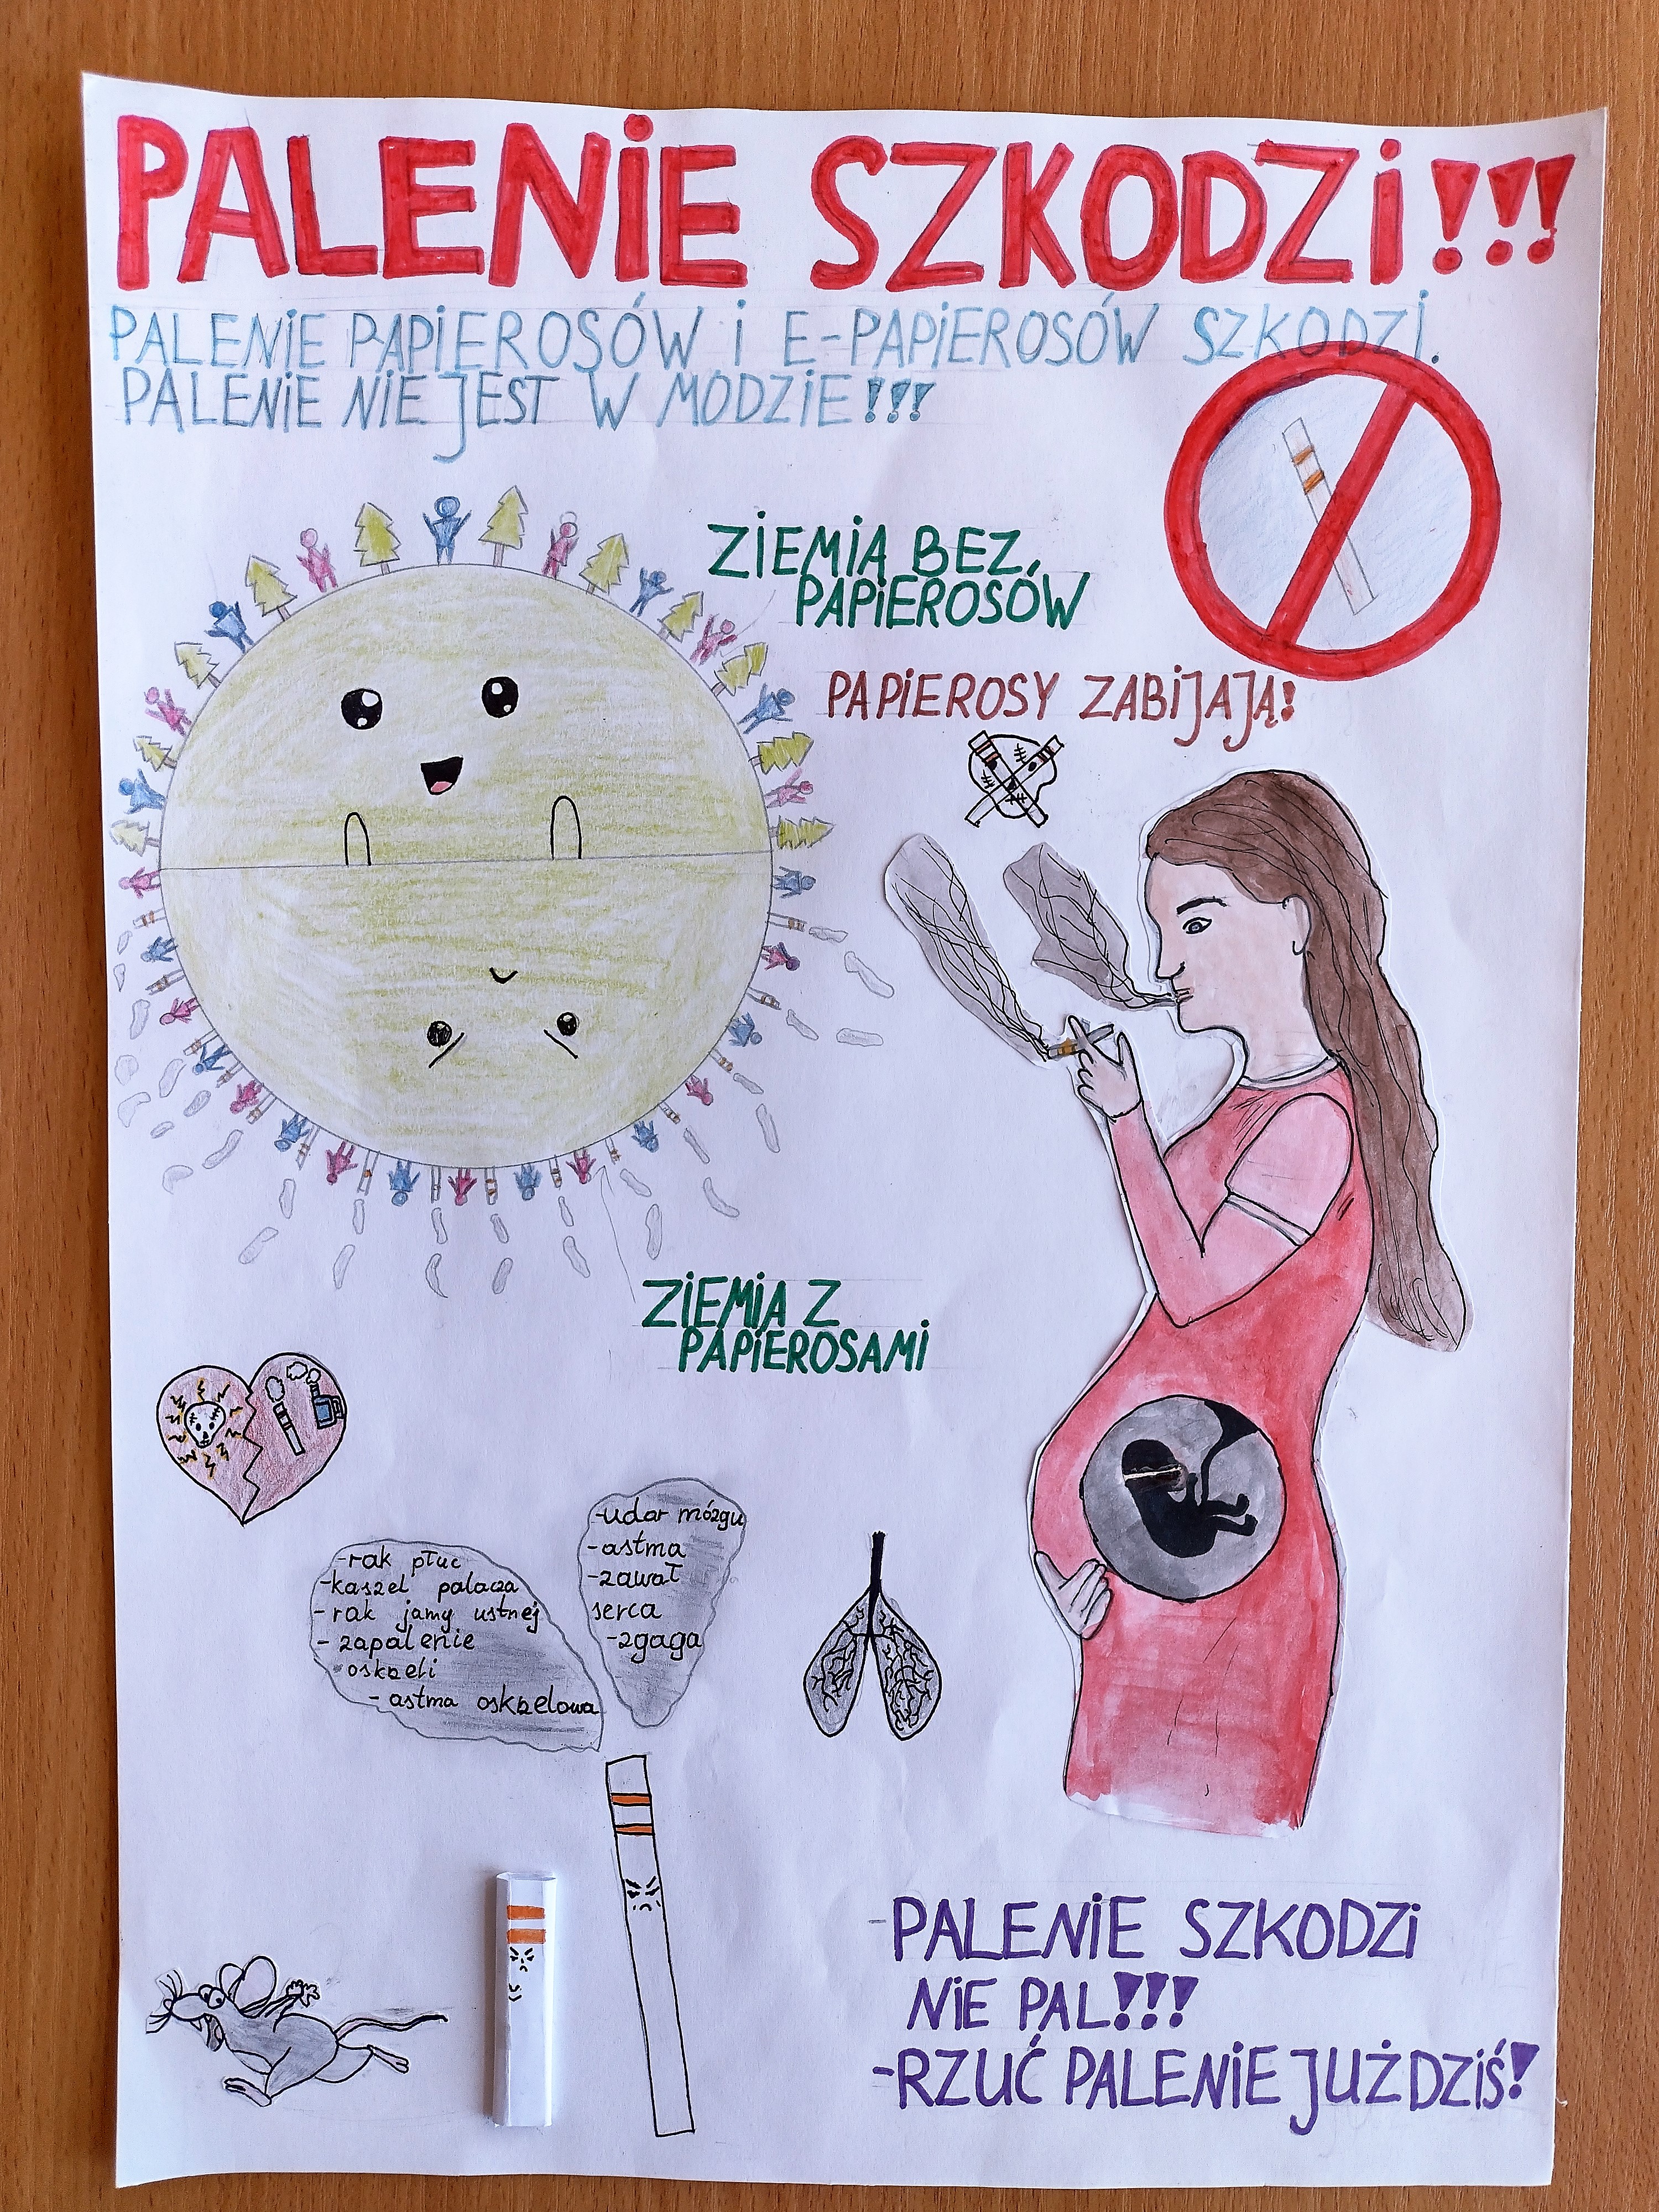 PALENIE SZKODZI!!!
PALENIE PAPIEROSÓW I E-PAPIEROSÓW SZKODZI.
PALENIE NIE JEST W MODZIE!!!
ZIEMIA BEZ
PAPIEROSÓW
PAPIEROSY ZABIJAJĄ!
ZIEMIA Z
PAPIEROSAMI
-udar mózgu
-astma
-zawał
serca
-zgaga
-rak płuc
-kaszel palacza
-rak jamy ustnej
-zapalenie
oskrzeli
-astma oskrzelowa
-PALENIE SZKODZI
NIE PAL!!!
-RZUĆ PALENIE JUŻ DZIŚ!